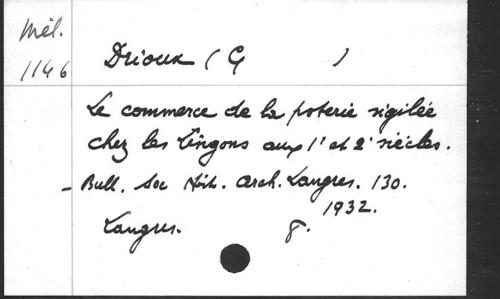 Mél.
1146
Drioux (G )
Le commerce de la poterie sigilée
chez les Lingons aux 1' et 2' siècles.
- Bull. Soc Hist. Arch. Langres. 130.
1932.
Langres. 8.